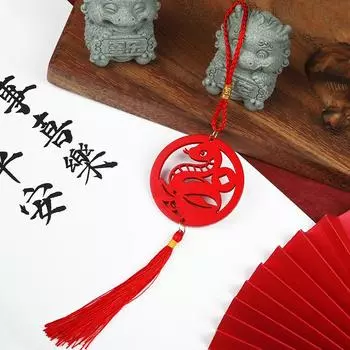 事喜樂
平安